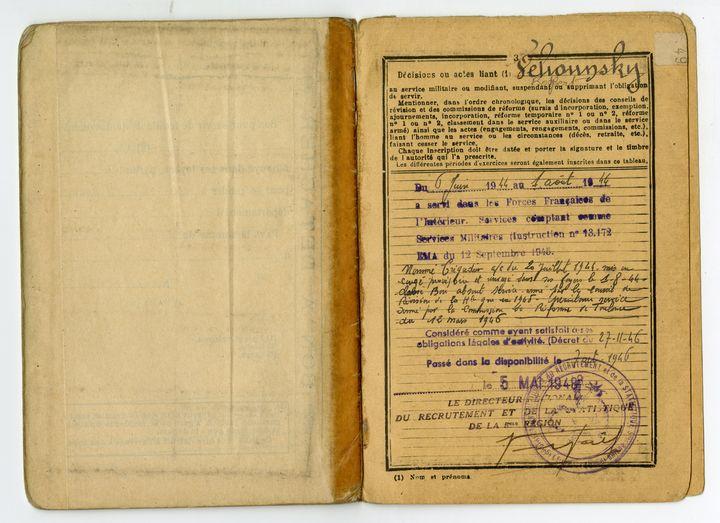 3
49
Décisions ou actes liant (1)
au service militaire ou modifiant, suspendant ou supprimant l'obligation
de servir.
Mentionner, dans l'ordre chronologique, les décisions des conseils de
révision et des commissions de réforme (sursis d'incorporation, exemption,
ajournements, incorporation, réforme temporaire nº 1 ou nº 2, réforme
nº 1 ou nº 2, classement dans le service auxiliaire ou dans le service
armé) ainsi que les actes (engagements, rengagements, commissions, etc.),
liant l'homme au service ou les circonstances (décès, retraite, etc.),
faisant cesser le service.
Chaque inscription doit être datée et porter la signature et le timbre
de l'autorité qui l'a prescrite.
Les différentes périodes d'exercices seront également inscrites dans ce tableau.
Du 6 Juin 1944 au août 1944
a servi dans les Forces Françaises de
l'Intérieur. Services comptant comme
Services Militaires (Instruction nº 13.172
EMA du 12 Septembre 1945.
Nommé Brigadier du 20 Juillet 1944 mis en
congé et dans ses foyers le
service armé par le Conseil de
Révision de la en 1945 service
armé par la Commission de Réforme de Toulouse
du 12 mars 1946
Considéré comme ayant satisfait à ses
obligations légales d'activité. (Décret du 27-11-46
Passé dans la disponibilité le 1946
le 5 MAI 1948
LE DIRECTEUR RÉGIONAL
DU RECRUTEMENT ET DE LA STATISTIQUE
DE LA RÉGION
(1) Nom et prénoms.